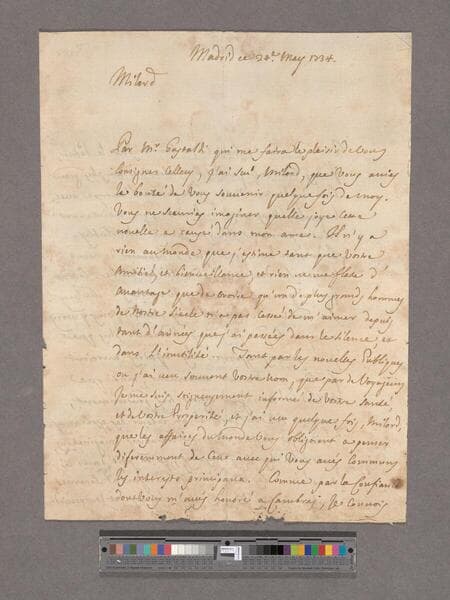 Madrid ce 28e May 1734.
Milord
Par Mr. Gastaldi qui me faira le plaisir de Vous
Consigner Cellecy, J'ai sçu, Milord, que Vous aviés
la bonté de Vous souvenir quelque fois de moy.
Vous ne sçauriés imaginer quelle joye cette
nouvelle a causé dans mon ame. Il n'y a
rien au Monde que j'estime tant que Votre
Amitié et bienveillance et rien ne me flate d'
Avantage que de croire qu'un de plus grands hommes
de Notre Siecle n'a pas cessé de m'aimer depuis
tant d'années que j'ai passées dans le silence et
dans L'inutilité. Tant par les nouvelles Publiques
ou j'ai veu souvent Votre Nom, que par de Voyageurs
Je me suis soigneusement informé de Votre Santé
et de Votre Prosperité, et j'ai veu quelque fois, Milord,
que les affaires du Monde Vous obligoient a penser
diferemment de Ceux avec qui Vous aviés Communs
les interests principaux. Comme par la Confiance
dont Vous m'avés honoré a Cambray, Je Connois